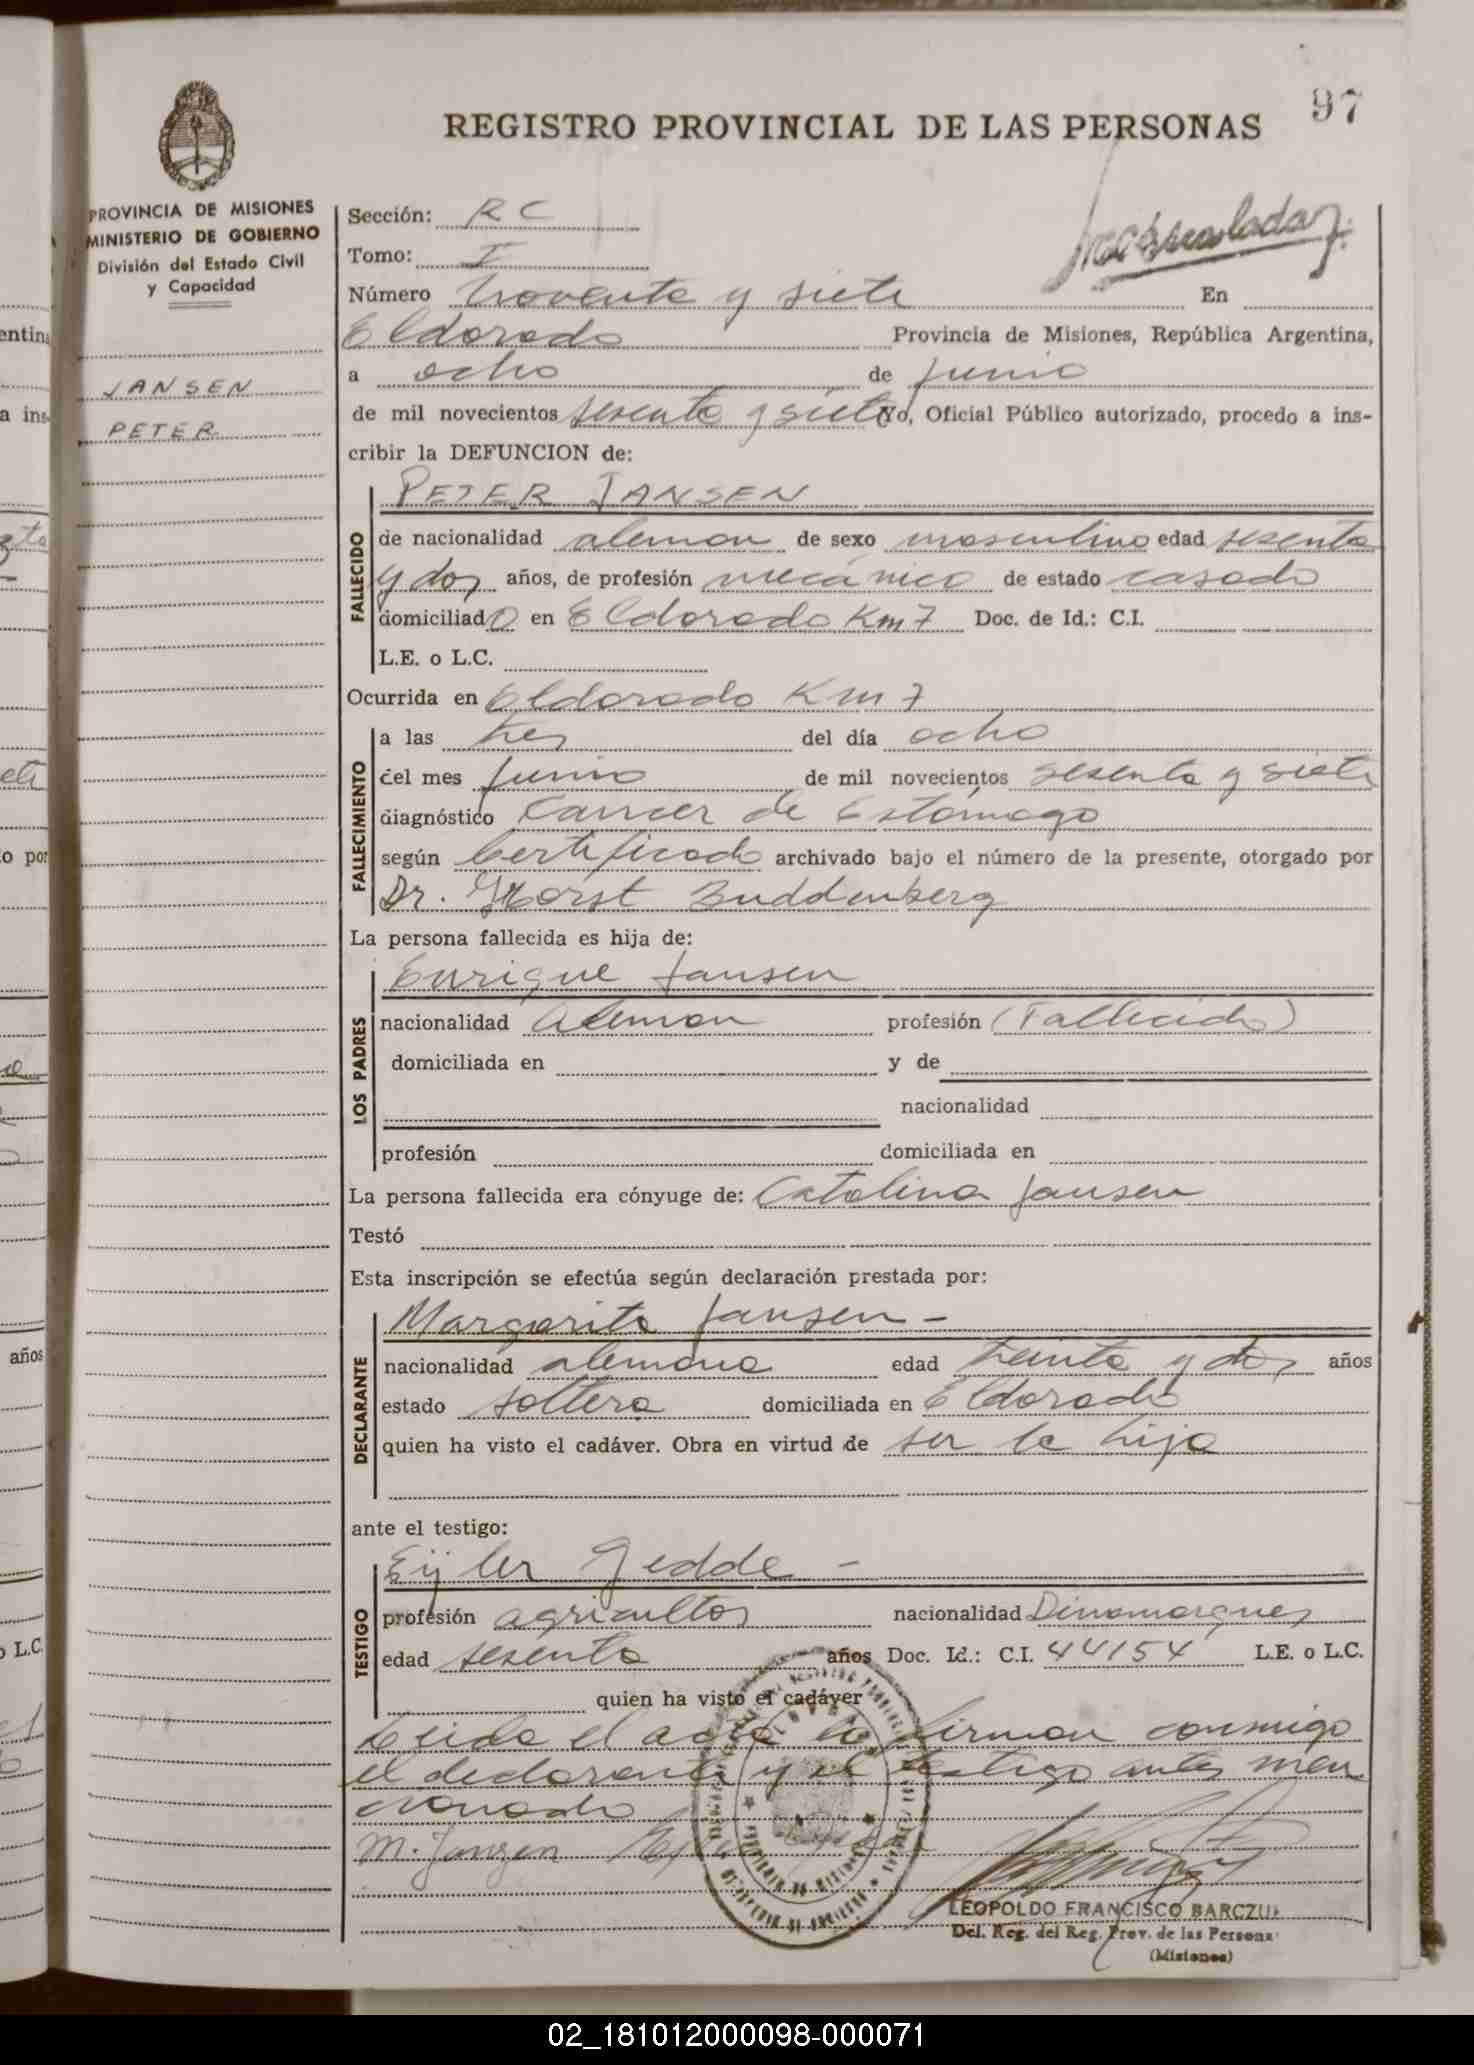 97
REGISTRO PROVINCIAL DE LAS PERSONAS
PROVINCIA DE MISIONES
MINISTERIO DE GOBIERNO
División del Estado Civil
y Capacidad
JANSEN
PETER
Sección: RC
Tomo: I
Número Noventa y siete En
Eldorado Provincia de Misiones, República Argentina,
a ocho de junio
de mil novecientos sesenta y siete Yo, Oficial Público autorizado, procedo a ins-
cribir la DEFUNCION de:
FALLECIDO
PETER JANSEN
de nacionalidad aleman de sexo masculino edad sesenta
y dos años, de profesión mecánico de estado casado
domiciliado en Eldorado Km 7 Doc. de Id.: C.I.
L.E. o L.C.
Ocurrida en Eldorado Km 7
FALLECIMIENTO
a las tres del día ocho
del mes junio de mil novecientos sesenta y siete
diagnóstico Cancer de Estómago
según Certificado archivado bajo el número de la presente, otorgado por
Dr. Horst Buddenberg
La persona fallecida es hija de:
LOS PADRES
Enrique Jansen
nacionalidad Aleman profesión (Fallecido)
domiciliada en y de
nacionalidad
profesión domiciliada en
La persona fallecida era cónyuge de: Catalina Jansen
Testó
Esta inscripción se efectúa según declaración prestada por:
DECLARANTE
Margarita Jansen -
nacionalidad alemana edad treinta y dos años
estado soltera domiciliada en Eldorado
quien ha visto el cadáver. Obra en virtud de ser la hija
ante el testigo:
TESTIGO
Eijler Gedde -
profesión agricultor nacionalidad Dinamarques
edad sesenta años Doc. Id.: C.I. 44154 L.E. o L.C.
quien ha visto el cadáver
Leida el acta la firman conmigo
el declarante y el testigo antes men
cionado
M. Janzen
LEOPOLDO FRANCISCO BARCZUK
Del. Reg. del Reg. Prov. de las Personas
(Misiones)
años
o L.C.
02_181012000098-000071